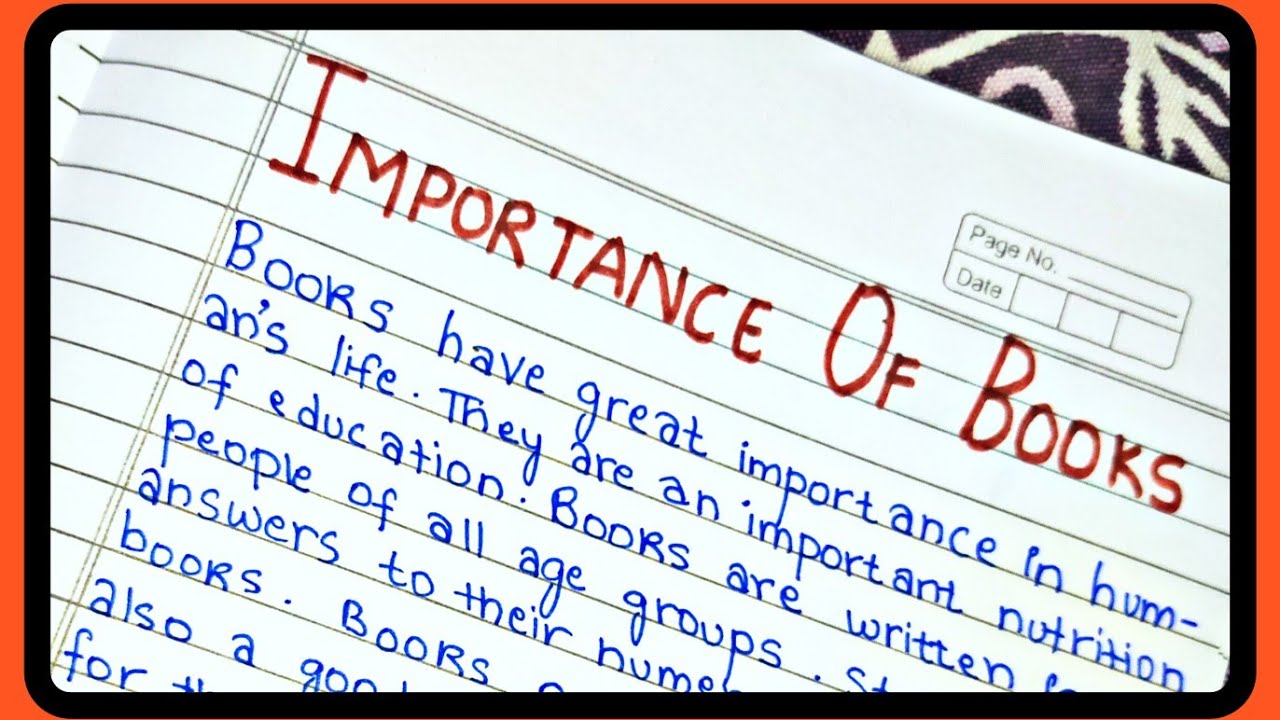 IMPORTANCE OF BOOKS
Page No.
Date
Books have great importance in hum-
an's life. They are an important nutrition
of education. Books are written
people of all age groups.
answers to their
books. Books
also a
for